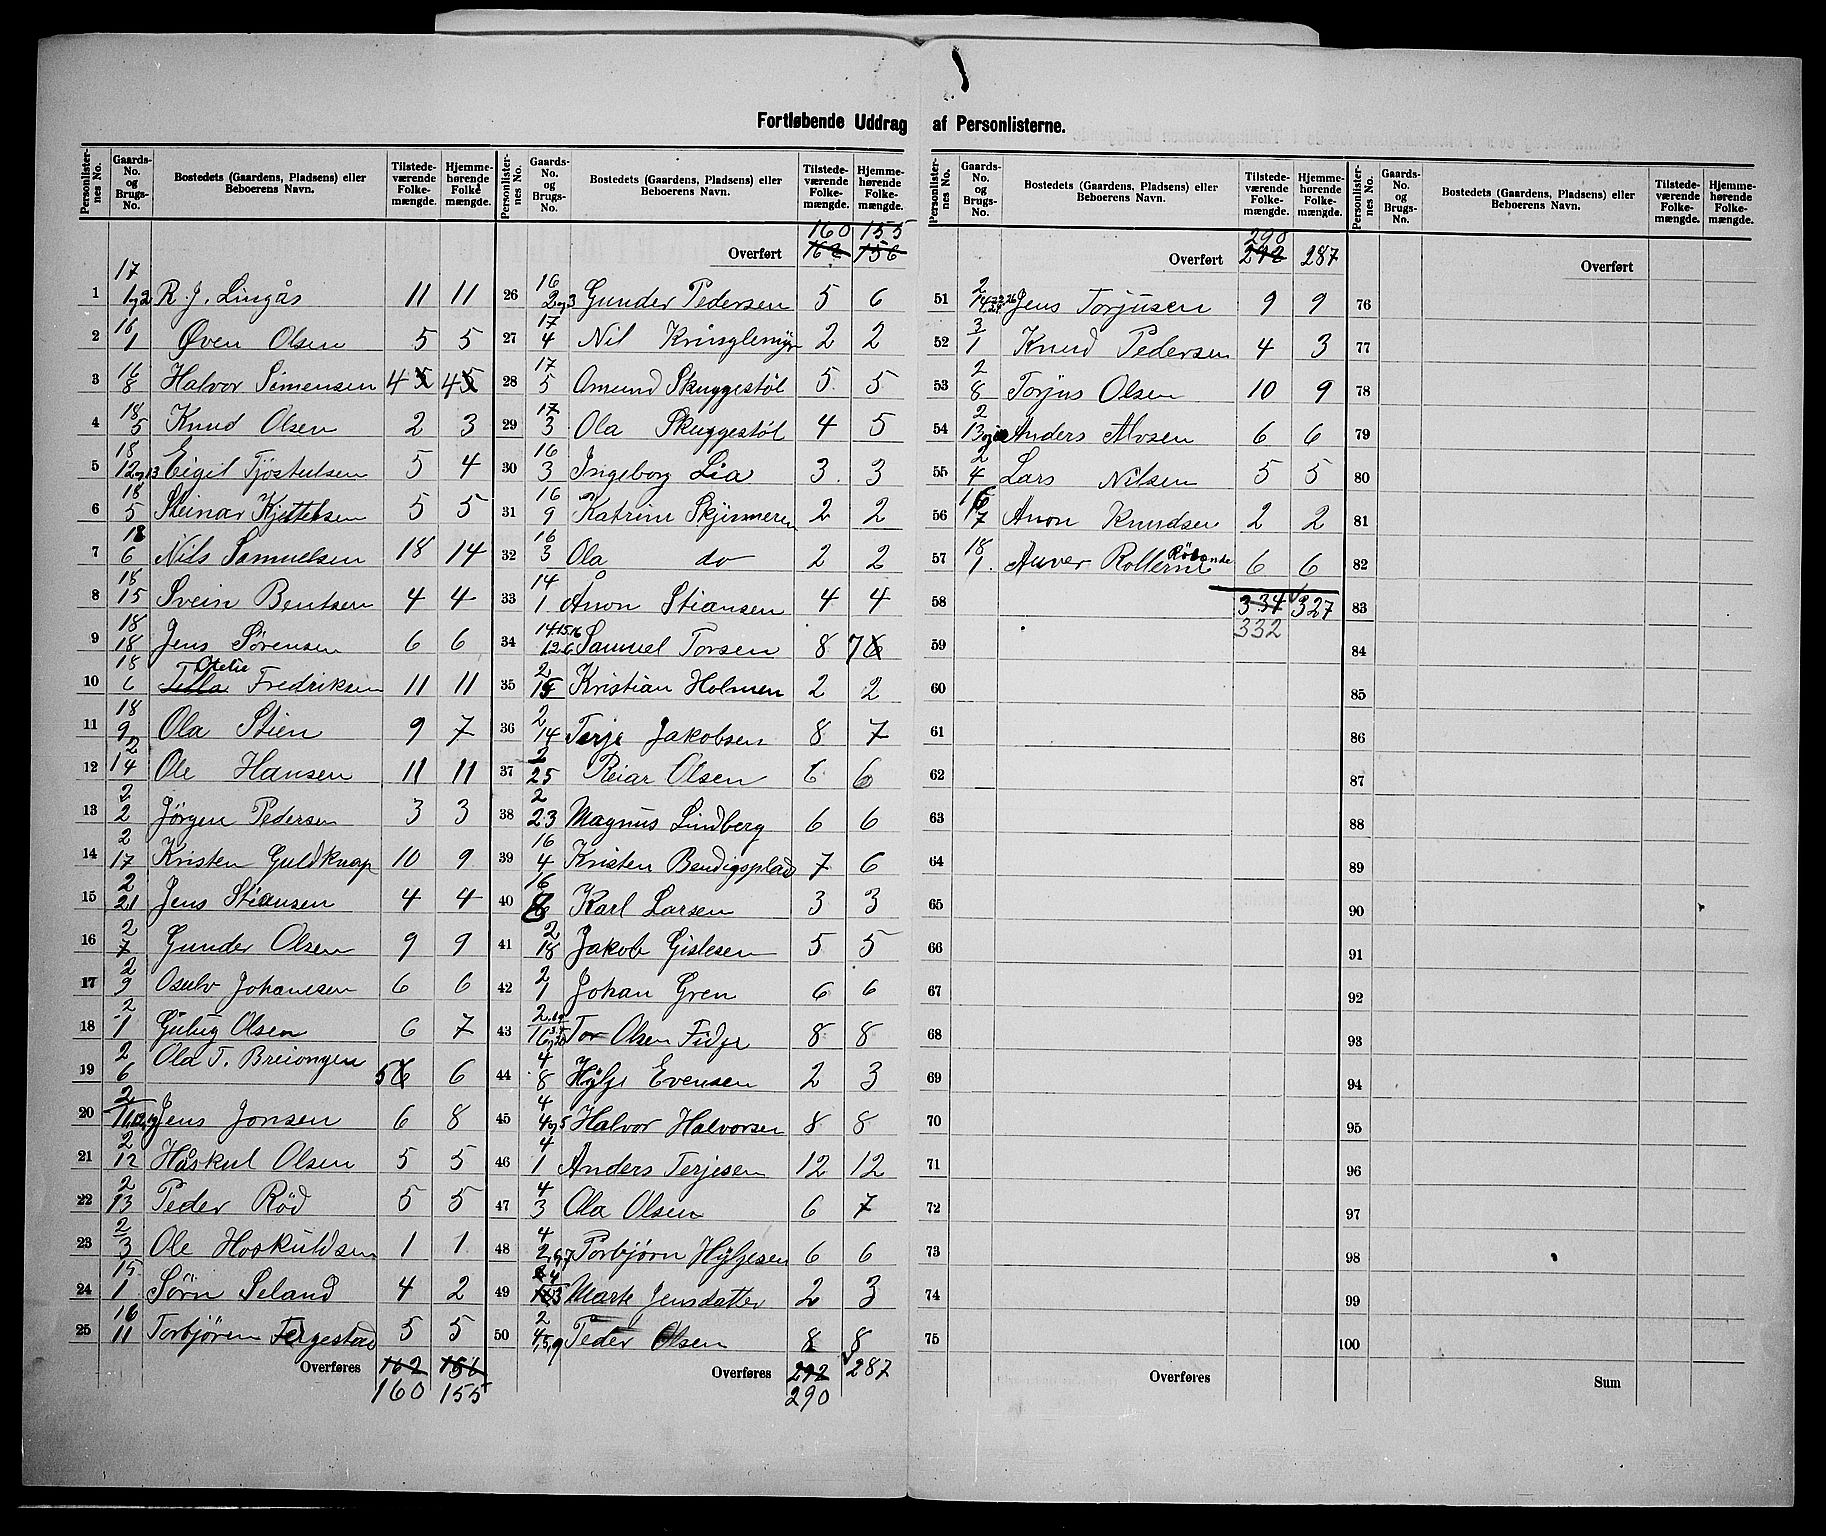 Fortløbende Uddrag af Personlisterne.
Personlisternes No. Gaards-No. og Brugs-No. Bostedets (Gaardens, Pladsens) eller Beboerens Navn. Tilstedeværende Folkemængde. Hjemmehørende Folkemængde.
1 17 1 og 2 R. J. Lingås 11 11
2 16 1 Øven Olsen 5 5
3 16 8 Halvor Simensen 4 5 4 5
4 18 5 Knud Olsen 2 3
5 18 12 og 13 Eigil Tjöstulsen 5 4
6 18 5 Steinar Kjittelsen 5 5
7 18 6 Nils Samuelsen 18 14
8 18 15 Svein Bentsen 4 4
9 18 18 Jens Sørensen 6 6
10 18 6 Otelie Fredriksen 11 11
11 18 9 Ola Stien 9 7
12 2 14 Ole Hansen 11 11
13 2 2 Jörgen Pedersen 3 3
14 2 17 Kristen Guldknap 10 9
15 2 21 Jens Stiansen 4 4
16 2 7 Gunder Olsen 9 9
17 2 9 Osulv Johanesen 6 6
18 2 1 Olsen 6 7
19 2 6 Ola T. Breiongen 5 6 6
20 2 Jens Jonsen 6 8
21 2 12 Håskul Olsen 5 5
22 2 13 Peder Röd 5 5
23 2 3 Ole Hoskuldsen 1 1
24 15 1 Sörn Seland 4 2
25 16 11 Torbjören Fergestad 5 5
Overføres 162 156
160 155
Personlisternes No. Gaards-No. og Brugs-No. Bostedets (Gaardens, Pladsens) eller Beboerens Navn. Tilstedeværende Folkemængde. Hjemmehørende Folkemængde.
160 155
Overført 162 156
26 16 2 og 3 Gunder Pedersen 5 6
27 17 4 Nil Kringlemyr 2 2
28 17 5 Omund Skuggestöl 5 5
29 17 3 Ola Skuggestöl 4 5
30 16 3 Ingeborg Lia 3 3
31 16 9 Katrine Skjinneren 2 2
32 16 3 Ola do 2 2
33 14 1 Ånon Stiansen 4 4
34 14 15 16 1 2 6 Samuel Torsen 8 7 6
35 2 15 Kristian Holmen 2 2
36 2 14 Terje Jakobsen 8 7
37 2 25 Reiar Olsen 6 6
38 2 23 Magnus Lindberg 6 6
39 16 4 Kristen Bendigsplads 7 6
40 16 Karl Larsen 3 3
41 2 18 Jakob Gislesen 5 5
42 2 1 Johan Gren 6 6
43 2 Tor Olsen Fidje 8 8
44 4 8 Hylje Evensen 2 3
45 4 4 og 5 Halvor Halvorsen 8 8
46 4 1 Anders Terjesen 12 12
47 4 3 Ola Olsen 6 7
48 4 2, 6, 7 Torbjørn Hyljesen 6 6
49 4 3 Marte Jensdatter 2 3
50 2 4, 5, 9 Peder Olsen 8 8
Overføres 292 287
290
Personlisternes No. Gaards-No. og Brugs-No. Bostedets (Gaardens, Pladsens) eller Beboerens Navn. Tilstedeværende Folkemængde. Hjemmehørende Folkemængde.
290
Overført 292 287
51 2 Jens Torjusen 9 9
52 3 1 Knud Pedersen 4 3
53 2 8 Torjus Olsen 10 9
54 2 Anders Mosen 6 6
55 2 4 Lars Nilsen 5 5
56 16 17 Anon Knudsen 2 2
57 18 1 Auver 6 6
58 334 327
332
59
60
61
62
63
64
65
66
67
68
69
70
71
72
73
74
75
Overføres
Personlisternes No. Gaards-No. og Brugs-No. Bostedets (Gaardens, Pladsens) eller Beboerens Navn. Tilstedeværende Folkemængde. Hjemmehørende Folkemængde.
Overført
76
77
78
79
80
81
82
83
84
85
86
87
88
89
90
91
92
93
94
95
96
97
98
99
100
Sum